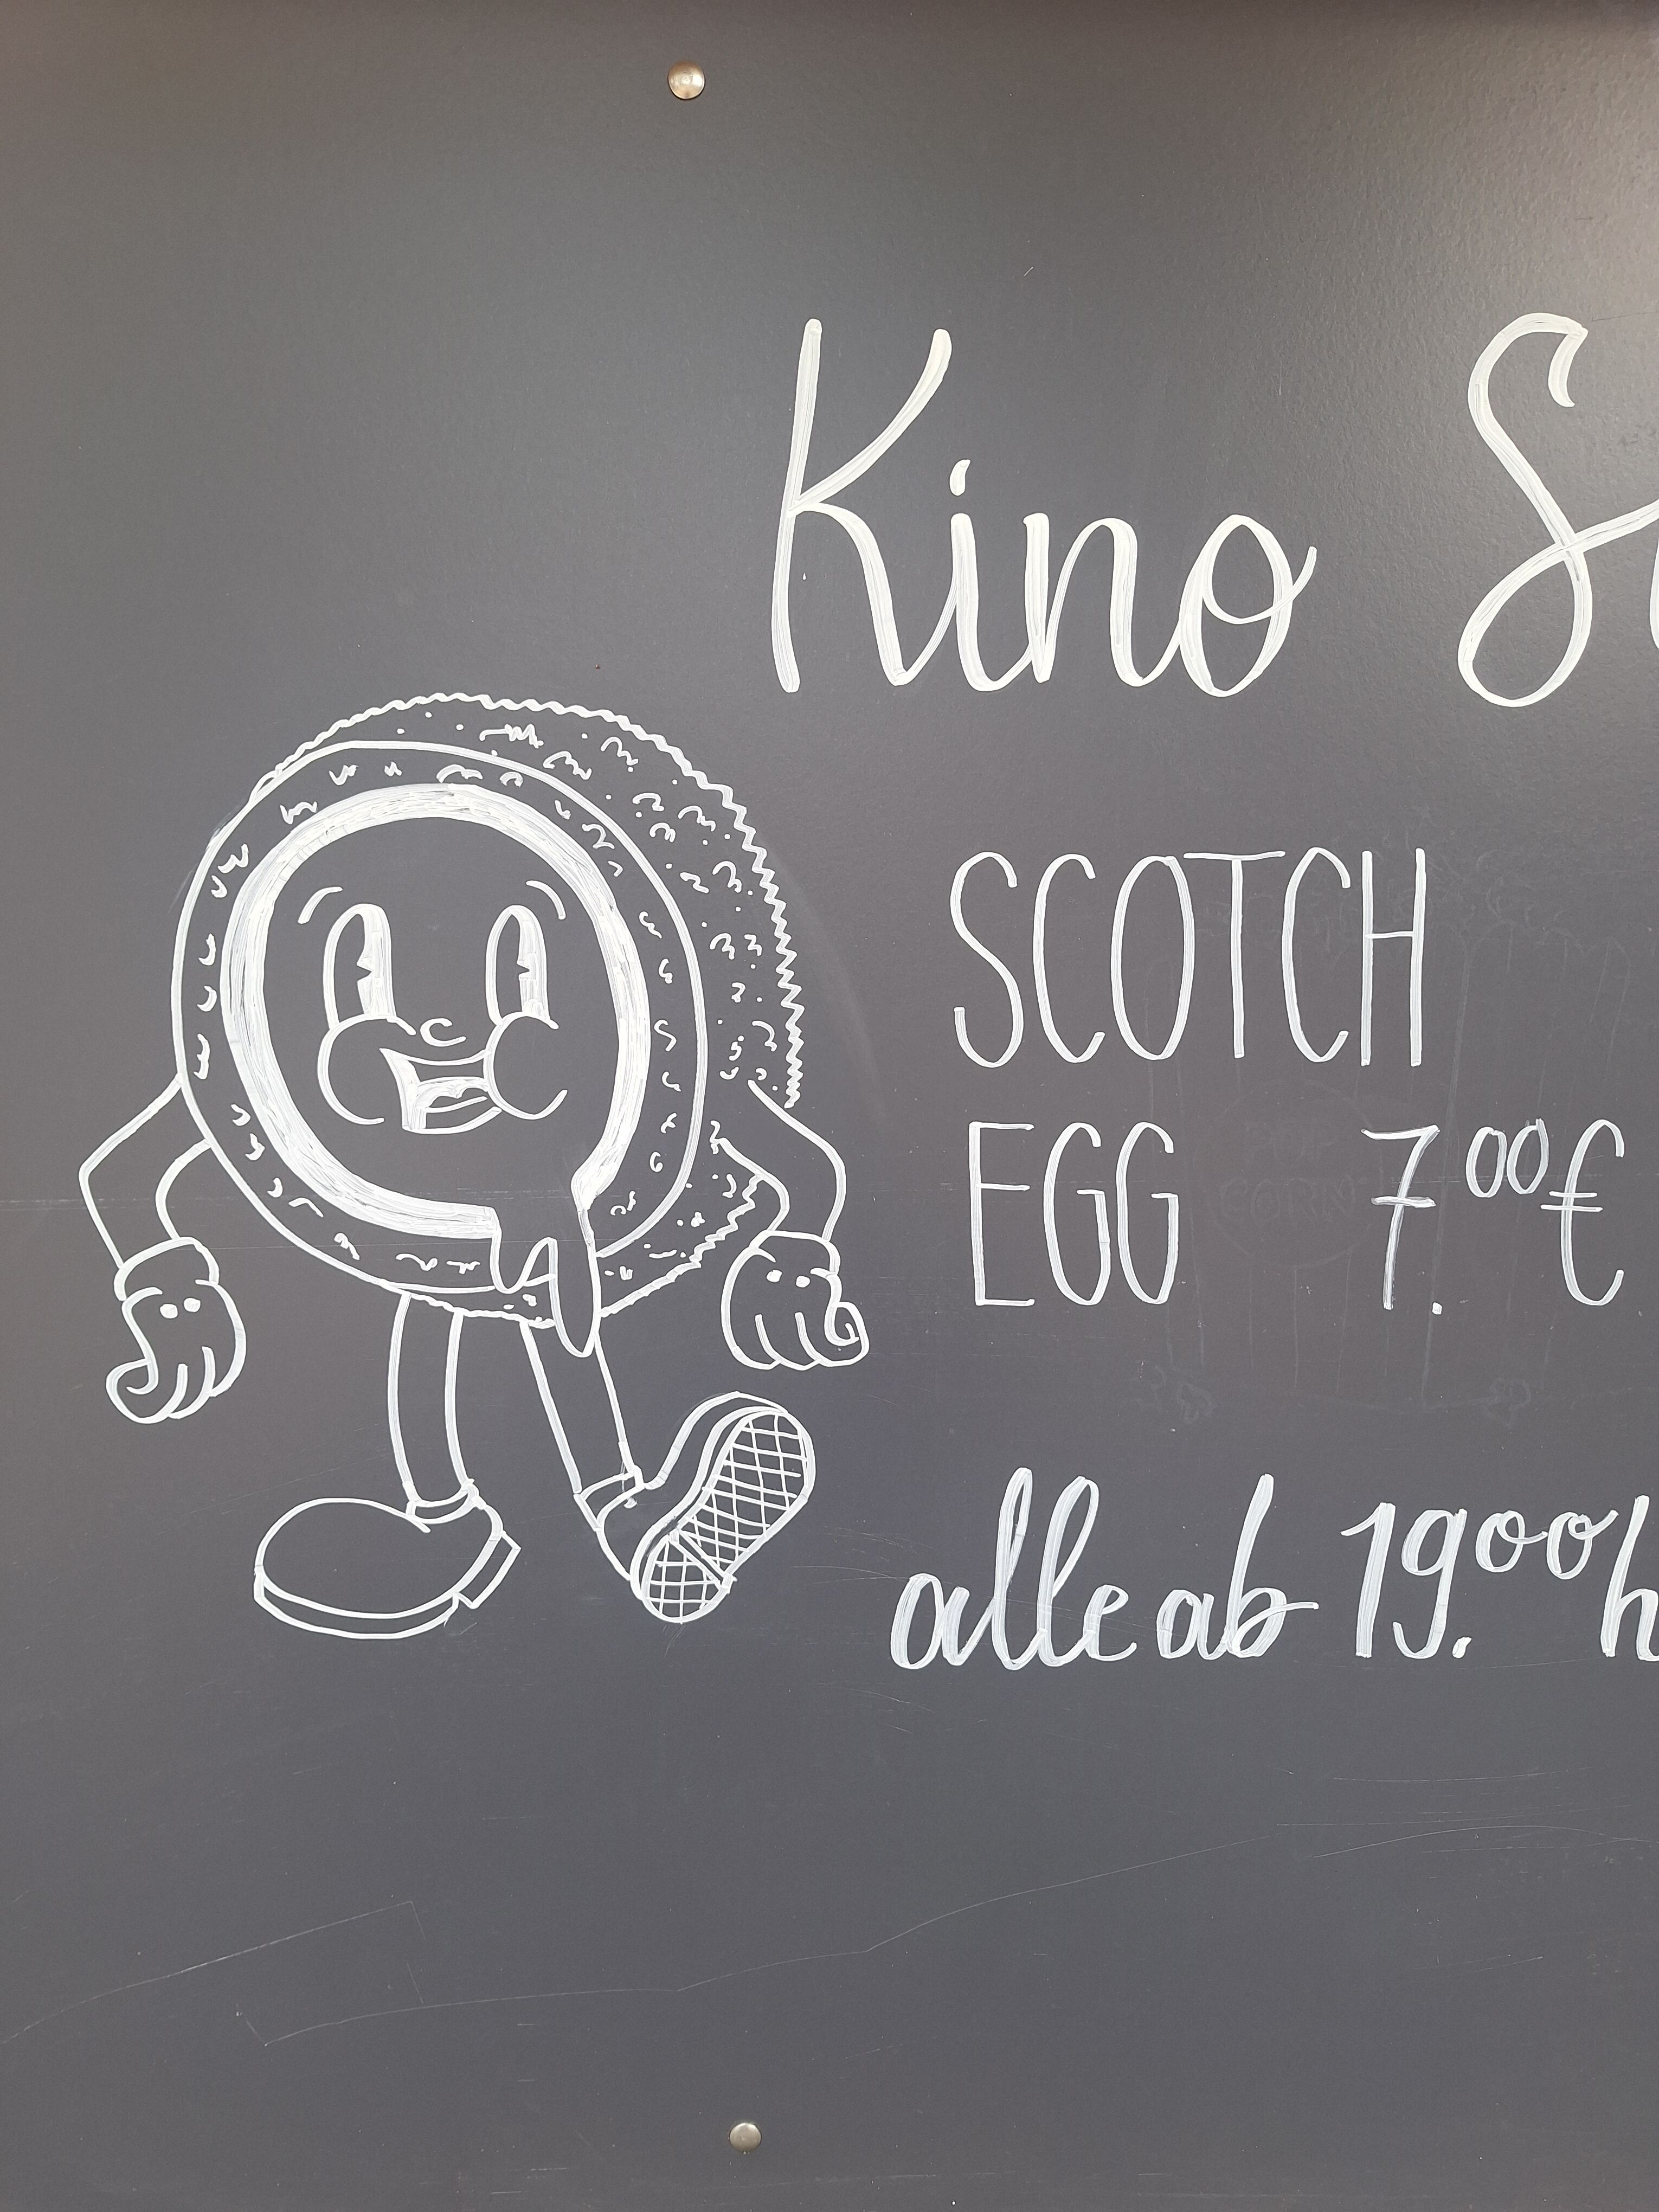 Kino S
SCOTCH
EGG 7.00€
alle ab 19.00h